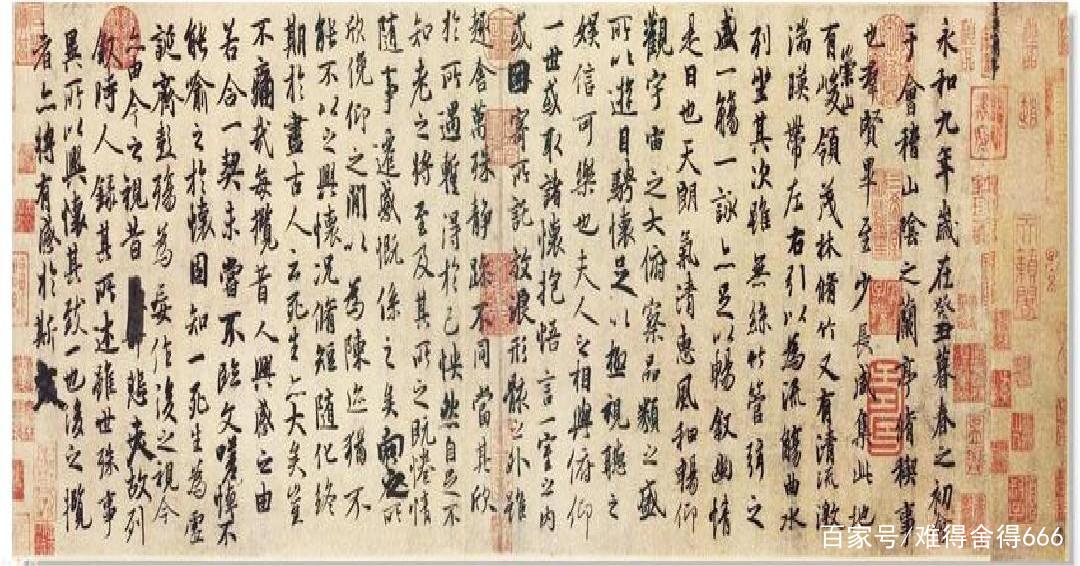 永和九年歲在癸丑暮春之初會
于會稽山陰之蘭亭脩稧事
也羣賢畢至少長咸集此地
有崇山峻領茂林脩竹又有清流激
湍暎帶左右引以為流觴曲水
列坐其次雖無絲竹管弦之
盛一觴一詠亦足以暢敘幽情
是日也天朗氣清惠風和暢仰
觀宇宙之大俯察品類之盛
所以遊目騁懷足以極視聽之
娛信可樂也夫人之相與俯仰
一世或取諸懷抱悟言一室之內
或因寄所託放浪形骸之外雖
趣舍萬殊静躁不同當其欣
於所遇暫得於己怏然自足不
知老之將至及其所之既惓情
隨事遷感慨係之矣向之所
欣俛仰之閒以為陳迹猶不
能不以之興懷況脩短隨化終
期於盡古人云死生亦大矣豈
不痛哉每攬昔人興感之由
若合一契未嘗不臨文嗟悼不
能喻之於懷固知一死生為虛
誕齊彭殤為妄作後之視今
亦由今之視昔悲夫故列
敘時人錄其所述雖世殊事
異所以興懷其致一也後之攬
者亦將有感於斯文
百家号/难得舍得666